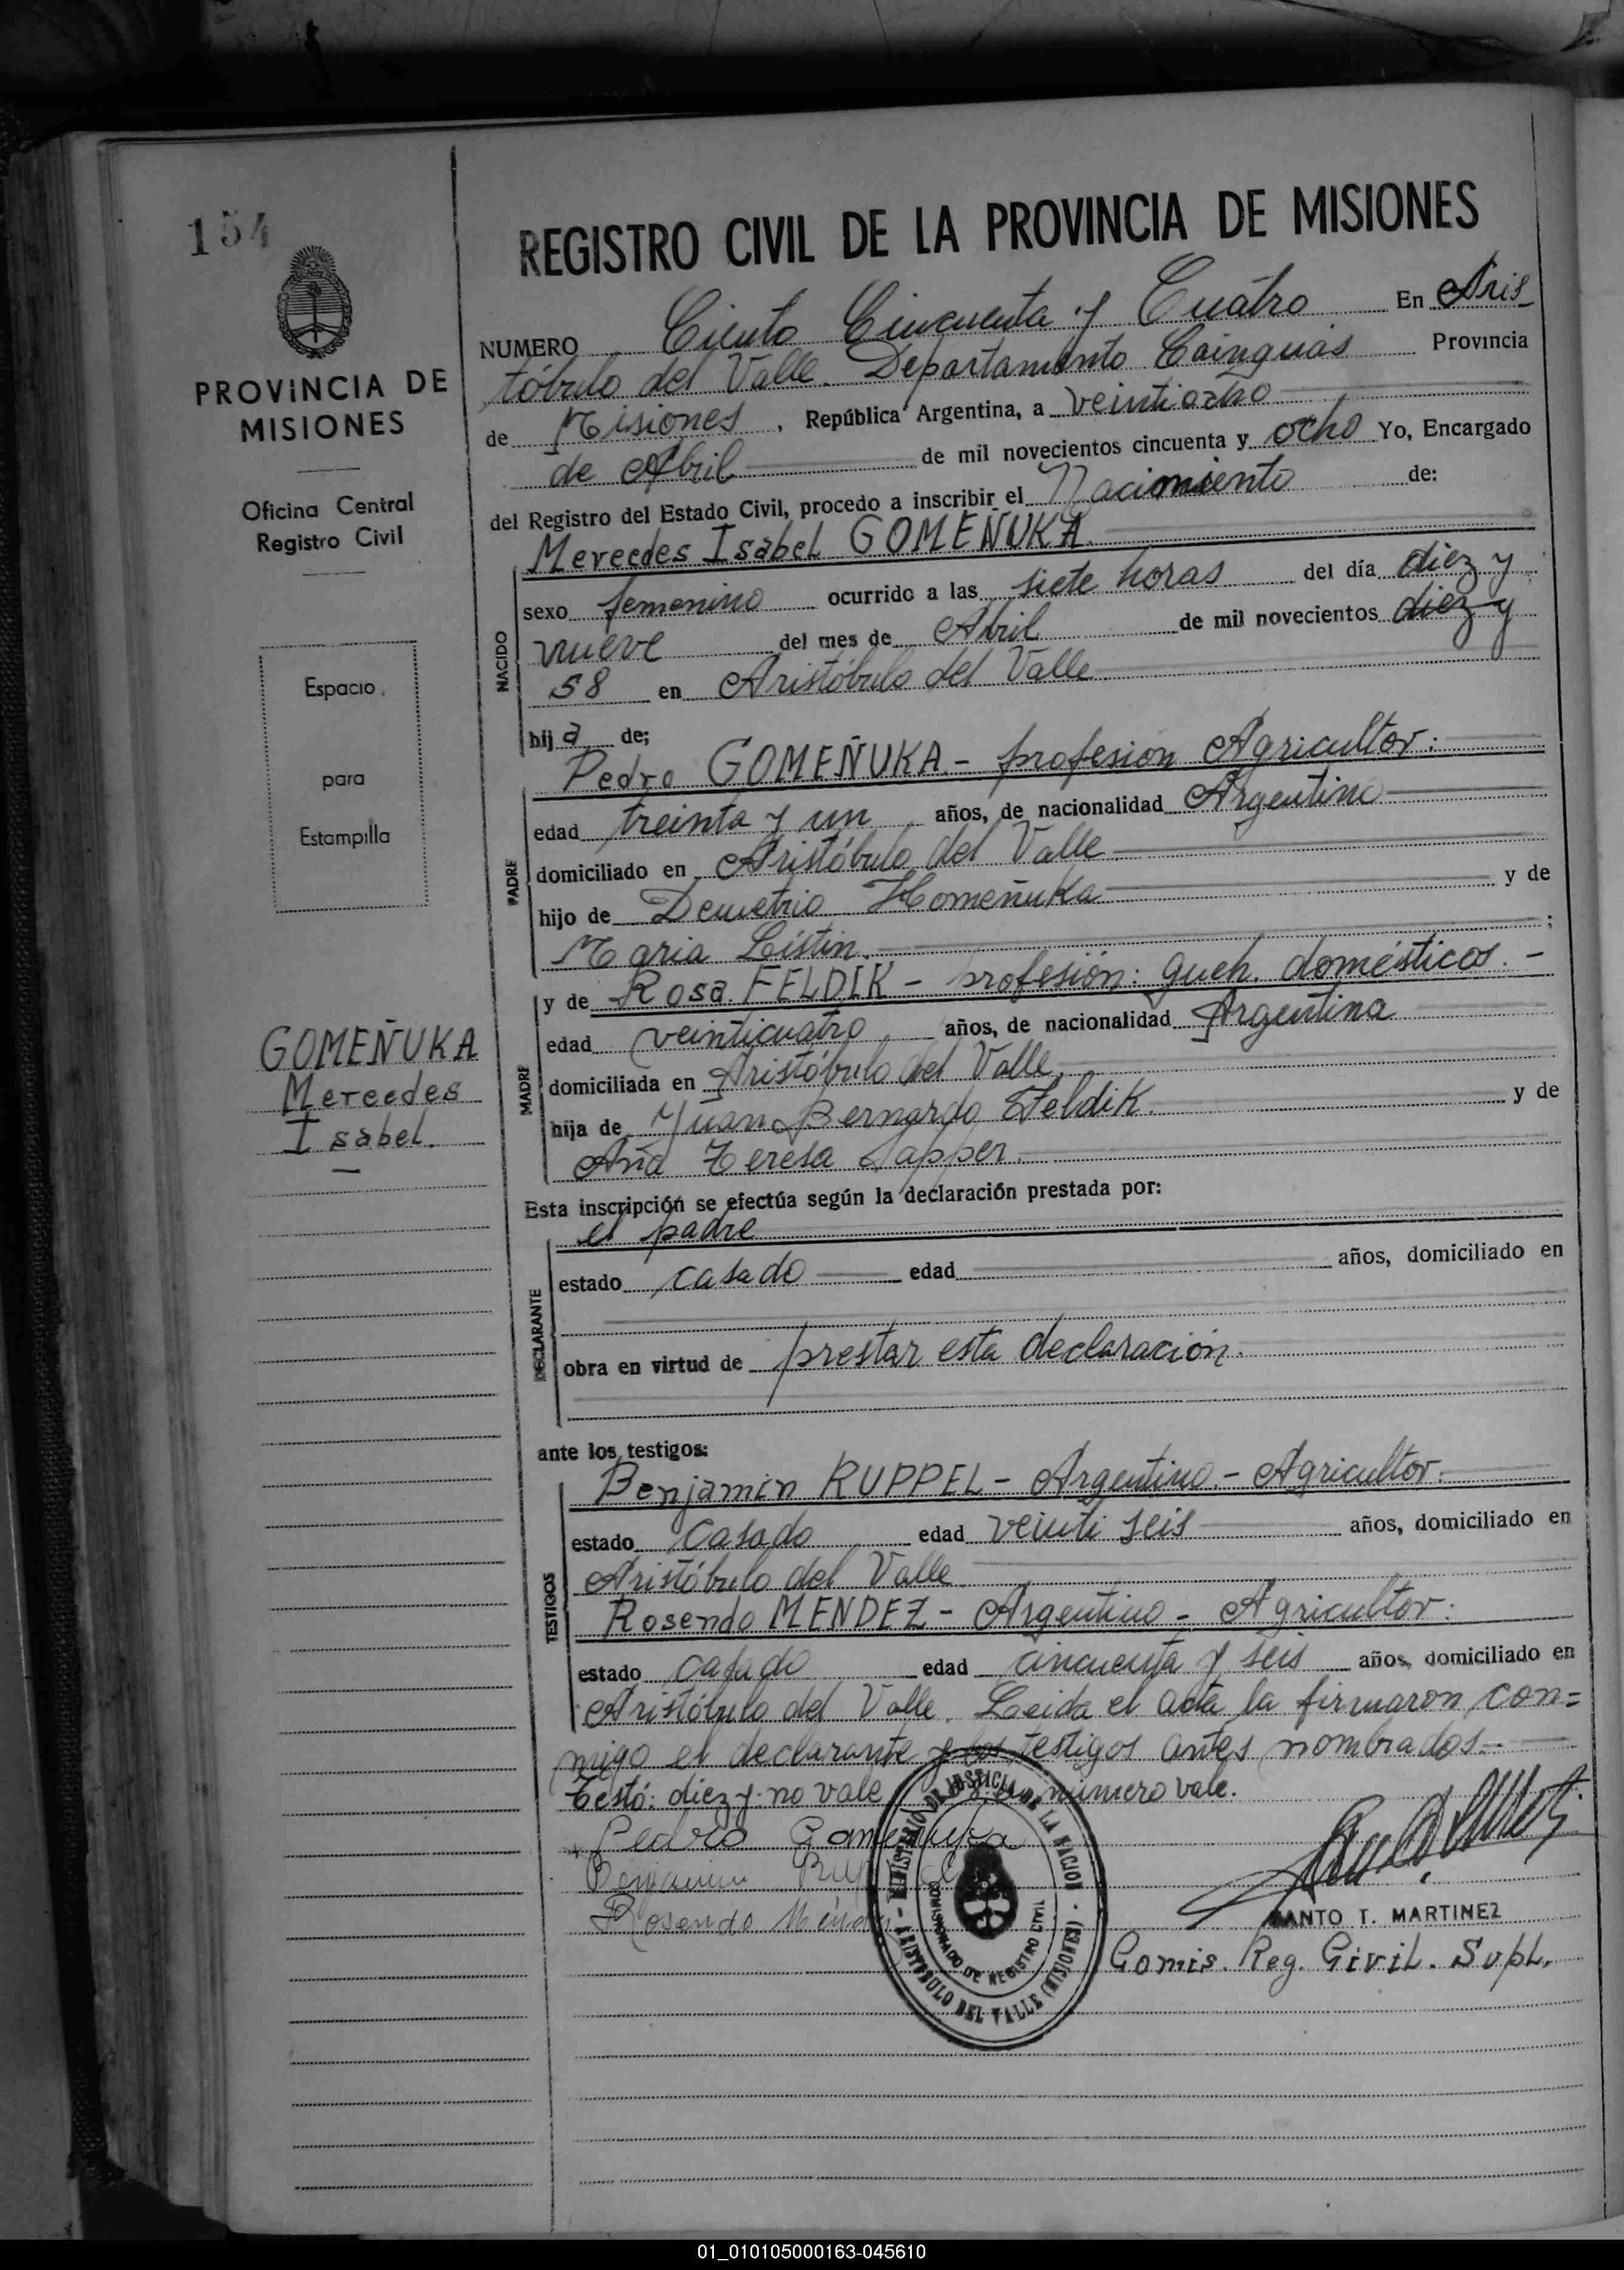 154
PROVINCIA DE
MISIONES
Oficina Central
Registro Civil
Espacio
para
Estampilla
GOMEÑUKA
Mercedes
Isabel.
REGISTRO CIVIL DE LA PROVINCIA DE MISIONES
NUMERO Ciento Cincuenta y Cuatro En Aris-
tóbulo del Valle. Departamento Cainguás Provincia
de Misiones, República Argentina, a veintiocho
de Abril de mil novecientos cincuenta y ocho Yo, Encargado
del Registro del Estado Civil, procedo a inscribir el Nacimiento de:
Mercedes Isabel GOMEÑUKA.
NACIDO
sexo femenino ocurrido a las siete horas del día diez y
nueve del mes de Abril de mil novecientos diez y
58 en Aristóbulo del Valle
hija de;
PADRE
Pedro GOMEÑUKA.- profesión Agricultor.
edad treinta y un años, de nacionalidad Argentino
domiciliado en Aristóbulo del Valle
hijo de Demetrio Homeñuka y de
Maria Listin. ;
MADRE
y de Rosa FELDIK - profesión: queh. domésticos. -
edad veinticuatro años, de nacionalidad Argentina
domiciliada en Aristóbulo del Valle,
hija de Juan Bernardo Feldik. y de
Ana Teresa Sapper.
Esta inscripción se efectúa según la declaración prestada por:
el padre
DECLARANTE
estado casado edad años, domiciliado en
obra en virtud de prestar esta declaración.
ante los testigos:
TESTIGOS
Benjamin RUPPEL - Argentino. - Agricultor.
estado Casado edad veinti seis años, domiciliado en
Aristóbulo del Valle
Rosendo MENDEZ - Argentino - Agricultor.
estado casado edad cincuenta y seis años, domiciliado en
Aristóbulo del Valle. Leida el acta la firmaron con=
migo el declarante y los testigos antes nombrados.-
Testó: diez y. no vale número vale.
Pedro Gomeñuka
Benjamin
Rosendo Méndez
MINISTERIO DE JUSTICIA DE LA NACION
ARISTOBULO DEL VALLE (MISIONES)
COMISIONADO DE REGISTRO CIVIL
SANTO T. MARTINEZ
Comis. Reg. Civil. Supl.
01_010105000163-045610